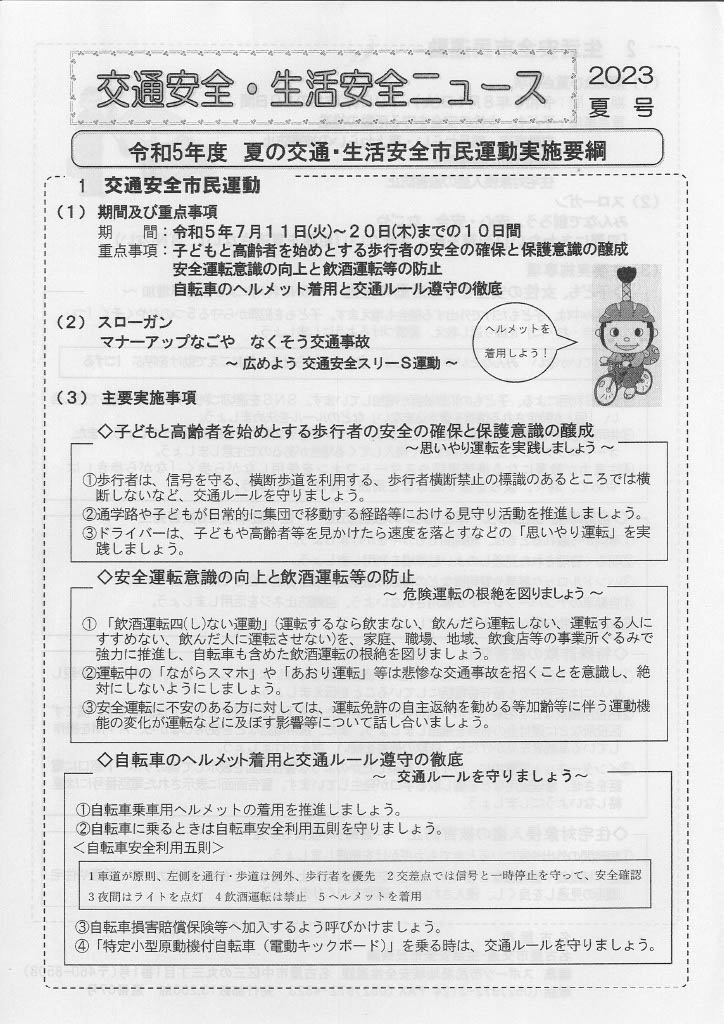 交通安全・生活安全ニュース
2023
夏　号
令和5年度　夏の交通・生活安全市民運動実施要綱
1　交通安全市民運動
（1）期間及び重点事項
期　　間：令和5年7月11日(火)～20日(木)までの10日間
重点事項：子どもと高齢者を始めとする歩行者の安全の確保と保護意識の醸成
安全運転意識の向上と飲酒運転等の防止
自転車のヘルメット着用と交通ルール遵守の徹底
（2）スローガン
マナーアップなごや　なくそう交通事故
～ 広めよう 交通安全スリーS運動 ～
ヘルメットを
着用しよう！
（3）主要実施事項
◇子どもと高齢者を始めとする歩行者の安全の確保と保護意識の醸成
～思いやり運転を実践しましょう～
①歩行者は、信号を守る、横断歩道を利用する、歩行者横断禁止の標識のあるところでは横
断しないなど、交通ルールを守りましょう。
②通学路や子どもが日常的に集団で移動する経路等における見守り活動を推進しましょう。
③ドライバーは、子どもや高齢者等を見かけたら速度を落とすなどの「思いやり運転」を実
践しましょう。
◇安全運転意識の向上と飲酒運転等の防止
～ 危険運転の根絶を図りましょう ～
①「飲酒運転四(し)ない運動」(運転するなら飲まない、飲んだら運転しない、運転する人に
すすめない、飲んだ人に運転させない)を、家庭、職場、地域、飲食店等の事業所ぐるみで
強力に推進し、自転車も含めた飲酒運転の根絶を図りましょう。
②運転中の「ながらスマホ」や「あおり運転」等は悲惨な交通事故を招くことを意識し、絶
対にしないようにしましょう。
③安全運転に不安のある方に対しては、運転免許の自主返納を勧める等加齢等に伴う運動機
能の変化が運転などに及ぼす影響等について話し合いましょう。
◇自転車のヘルメット着用と交通ルール遵守の徹底
～ 交通ルールを守りましょう～
①自転車乗車用ヘルメットの着用を推進しましょう。
②自転車に乗るときは自転車安全利用五則を守りましょう。
＜自転車安全利用五則＞
1 車道が原則、左側を通行・歩道は例外、歩行者を優先　2 交差点では信号と一時停止を守って、安全確認
3 夜間はライトを点灯　4 飲酒運転は禁止　5 ヘルメットを着用
③自転車損害賠償保険等へ加入するよう呼びかけましょう。
④「特定小型原動機付自転車（電動キックボード）」を乗る時は、交通ルールを守りましょう。